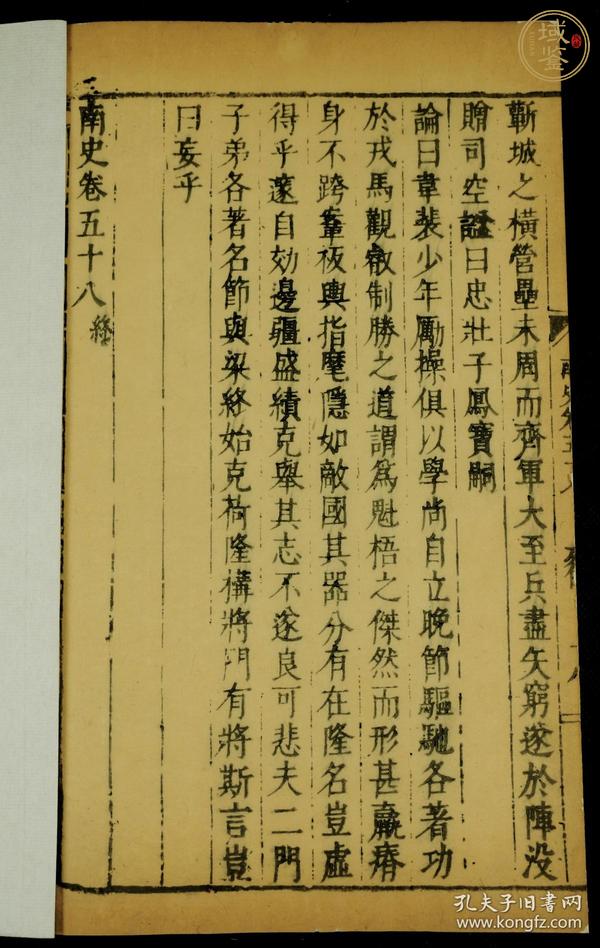 蘄城之橫營壘未周而齊軍大至兵盡矢窮遂於陣没
贈司空謚曰忠壯子鳳寶嗣
論曰韋裴少年勵操俱以學尚自立晚節驅馳各著功
於戎馬觀叡制勝之道謂爲魁梧之傑然而形甚羸瘠
身不跨鞌板輿指麾隱如敵國其器分有在隆名豈虛
得乎邃自効邊疆盛績克舉其志不遂良可悲夫二門
子弟各著名節與梁終始克荷隆構將門有將斯言豈
曰妄乎
南史卷五十八 終
南史卷五十八
域鑒
孔夫子旧书网
www.kongfz.com